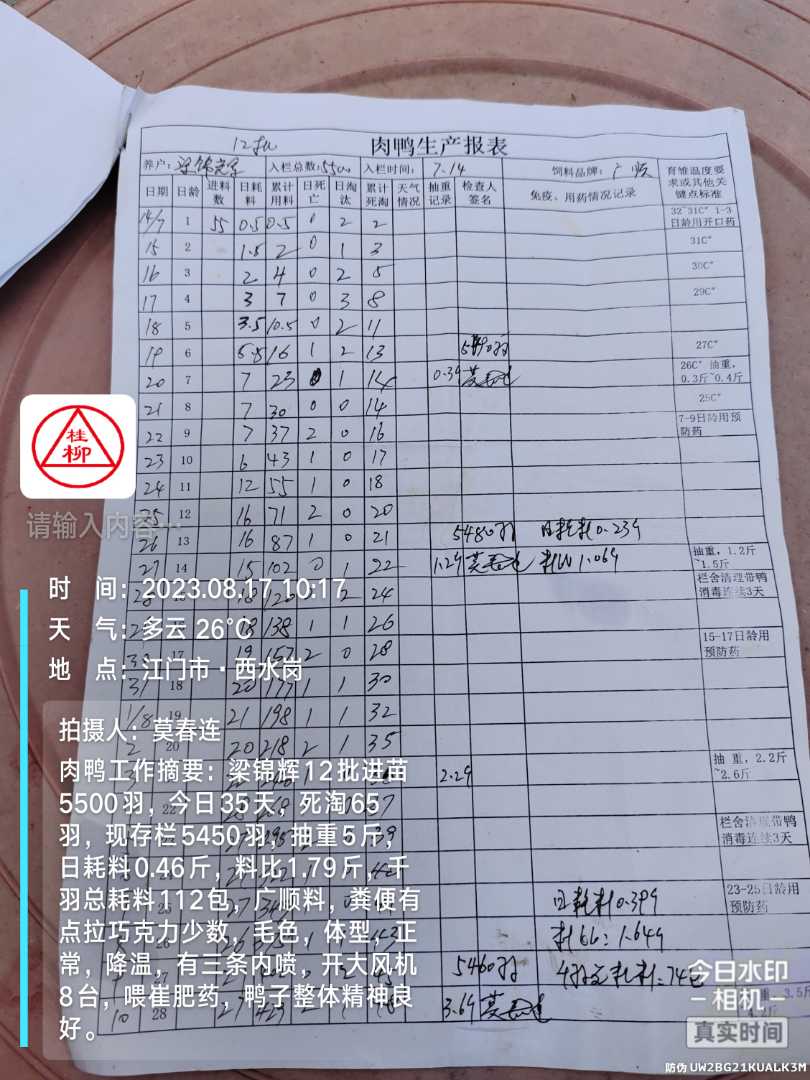 12批
肉鸭生产报表
养户: 入栏总数:5500 入栏时间: 7.14 饲料品牌: 广顺 育雏温度要求或其他关键点标准
日期 日龄 进料数 日耗料 累计用料 日死亡 日淘汰 累计死淘 天气情况 抽重记录 检查人签名 免疫、用药情况记录
14/7 1 55 0.5 0.5 0 2 2 32~31C° 1-3日龄用开口药
15 2 1.5 2 0 1 3 31C°
16 3 2 4 0 2 5 30C°
17 4 3 7 0 3 8 29C°
18 5 3.5 10.5 0 2 11
19 6 5.5 16 1 2 13 5490羽 27C°
20 7 7 23 0 1 14 0.39 莫春连 26C° 抽重,0.3斤~0.4斤
21 8 7 30 0 0 14 25C°
22 9 7 37 2 0 16 7-9日龄用预防药
23 10 6 43 1 0 17
24 11 12 55 1 0 18
25 12 16 71 2 0 20
26 13 16 87 1 0 21 5480羽 日耗料0.239
27 14 15 102 0 1 22 1.29 莫春连 料比1.069 抽重,1.2斤~1.5斤
2 24 栏舍清理带鸭消毒连续3天
18 138 1 1 26
17 19 157 2 0 28 15-17日龄用预防药
31 18 20 177 1 1 30
1/8 19 21 198 1 1 32
2 20 20 218 2 1 35
3 2.29 抽重,2.2斤~2.6斤
22 37
栏舍清理带鸭消毒连续3天
25 27 日耗料0.399 23-25日龄用预防药
料比:1.649
5460羽
10 28 27 3.69 莫春连
桂柳
请输入内容…
时 间:2023.08.17 10:17
天 气:多云 26℃
地 点:江门市·西水岗
拍摄人:莫春连
肉鸭工作摘要:梁锦辉12批进苗
5500羽,今日35天,死淘65
羽,现存栏5450羽,抽重5斤,
日耗料0.46斤,料比1.79斤,千
羽总耗料112包,广顺料,粪便有
点拉巧克力少数,毛色,体型,正
常,降温,有三条内喷,开大风机
8台,喂崔肥药,鸭子整体精神良
好。
今日水印
相机
真实时间
防伪 UW2BG21KUALK3M